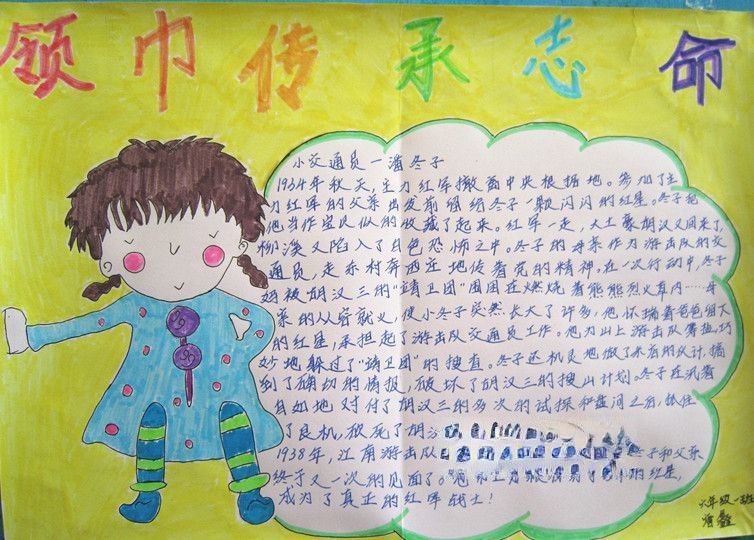 领巾传承志命
小交通员一潘冬子
1934年秋天,主力红军撤离中央根据地。参加了主
力红军的父亲出发前留给冬子一颗闪闪的红星。冬子把
他当作宝贝似的收藏了起来。红军一走,大土豪胡汉又回来了,
柳溪又陷入了白色恐怖之中。冬子的母亲作为游击队的交
通员,走东村奔西庄地传着党的精神。在一次行动中,冬子
妈被胡汉三的"靖卫团"围困在燃烧着熊熊烈火草内……母
亲的从容就义,使小冬子突然长大了许多,他怀揣着爸爸留下
的红星,承担起了游击队交通员工作。他为山上游击队筹盐,巧
妙地躲过了"靖卫团"的搜查。冬子还机灵地做了米店的伙计,搞
到了确切的情报,破坏了胡汉三的搜山计划。冬子在沉着
自如地对付了胡汉三的多次的试探和盘问之后,抓住
了良机,砍死了胡
1938年,江南游击队 冬子和父亲
终于又一次的见面了。 的红星,
成为了真正的红军战士!
六年级一班